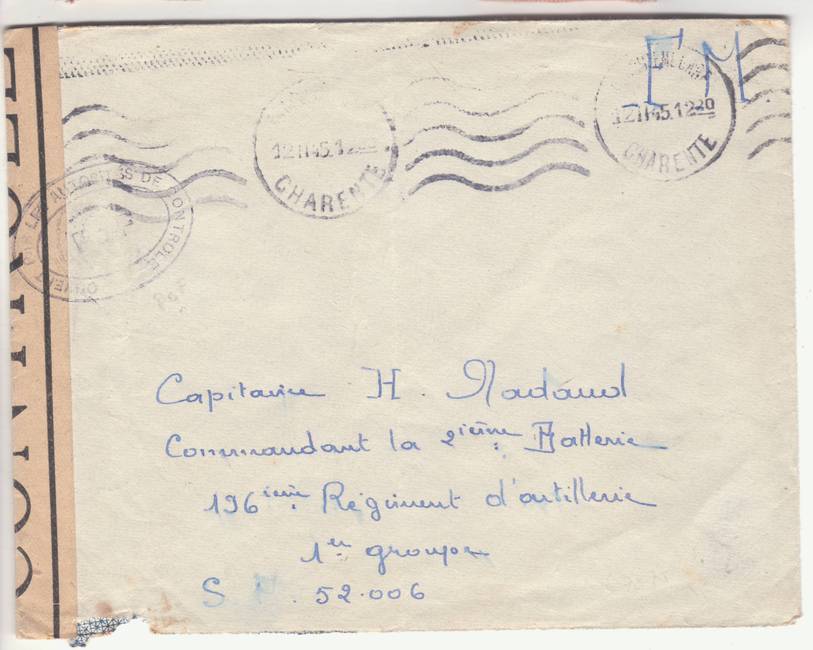 F M
12 II 45. 12 20
CHARENTE
12 II 45. 12 20
CHARENTE
CONTROLE
OUVERT PAR LES AUTORITÉS DE CONTROLE
Capitaine H. Nadaud
Commandant la 2ième Batterie
196ième Régiment d'artillerie
1er groupe
S P. 52.006